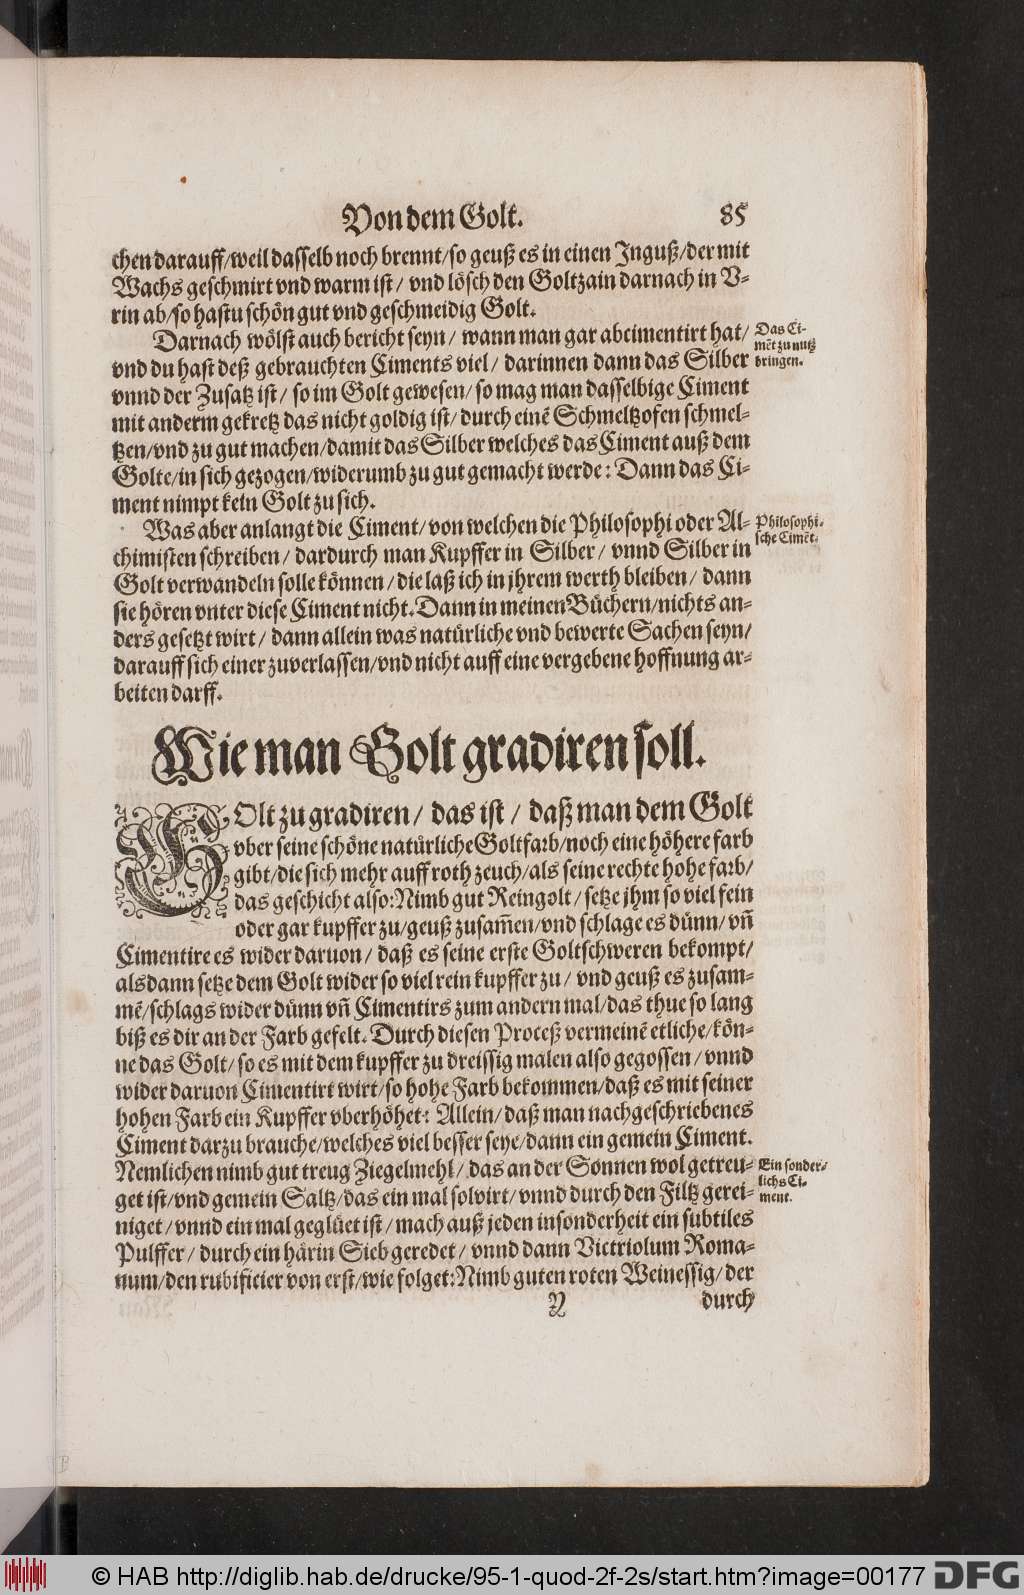 Von dem Golt. 85
chen darauff/weil dasselb noch brennt/so geuß es in einen Inguß/der mit
Wachs geschmirt vnd warm ist/ vnd lösch den Goltzain darnach in V-
rin ab/so hastu schön gut vnd geschmeidig Golt.
Darnach wölst auch bericht seyn/ wann man gar abcimentirt hat/
Das Ci-
mẽt zu nutz
bringen.
vnd du hast deß gebrauchten Ciments viel/ darinnen dann das Silber
vnnd der Zusatz ist/ so im Golt gewesen/ so mag man dasselbige Ciment
mit anderm gekretz das nicht goldig ist/ durch einẽ Schmeltzofen schmel-
tzen/vnd zu gut machen/damit das Silber welches das Ciment auß dem
Golte/in sich gezogen/widerumb zu gut gemacht werde: Dann das Ci-
ment nimpt kein Golt zu sich.
Was aber anlangt die Ciment/von welchen die Philosophi oder Al-
Philosophi-
sche Cimẽt.
chimisten schreiben/ dardurch man Kupffer in Silber/ vnnd Silber in
Golt verwandeln solle können/ die laß ich in jhrem werth bleiben/ dann
sie hören vnter diese Ciment nicht. Dann in meinen Büchern/nichts an-
ders gesetzt wirt/ dann allein was natürliche vnd bewerte Sachen seyn/
darauff sich einer zuverlassen/vnd nicht auff eine vergebene hoffnung ar-
beiten darff.
Wie man Golt gradiren soll.
GOlt zu gradiren/ das ist/ daß man dem Golt
vber seine schöne natürliche Goltfarb/noch eine höhere farb
gibt/die sich mehr auff roth zeuch/als seine rechte hohe farb/
das geschicht also: Nimb gut Reingolt/ setze jhm so viel fein
oder gar kupffer zu/geuß zusam̃en/vnd schlage es dünn/ vñ
Cimentire es wider daruon/ daß es seine erste Goltschweren bekompt/
alsdann setze dem Golt wider so viel rein kupffer zu/ vnd geuß es zusam-
mẽ/schlags wider dünn vñ Cimentirs zum andern mal/das thue so lang
biß es dir an der Farb gefelt. Durch diesen Proceß vermeinẽ etliche/kön-
ne das Golt/ so es mit dem kupffer zu dreissig malen also gegossen/ vnnd
wider daruon Cimentirt wirt/so hohe Farb bekommen/daß es mit seiner
hohen Farb ein Kupffer vberhöhet: Allein/ daß man nachgeschriebenes
Ciment darzu brauche/welches viel besser seye/dann ein gemein Ciment.
Nemlichen nimb gut treug Ziegelmehl/ das an der Sonnen wol getreu-
Ein sonder-
lichs Ci-
ment.
get ist/vnd gemein Saltz/das ein mal solvirt/ vnnd durch den Filtz gerei-
niget/ vnnd ein mal geglüet ist/ mach auß jeden insonderheit ein subtiles
Pulffer/ durch ein härin Sieb geredet/ vnnd dann Victriolum Roma-
num/den rubificier von erst/wie folget: Nimb guten roten Weinessig/ der
Y durch
© HAB http://diglib.hab.de/drucke/95-1-quod-2f-2s/start.htm?image=00177 DFG